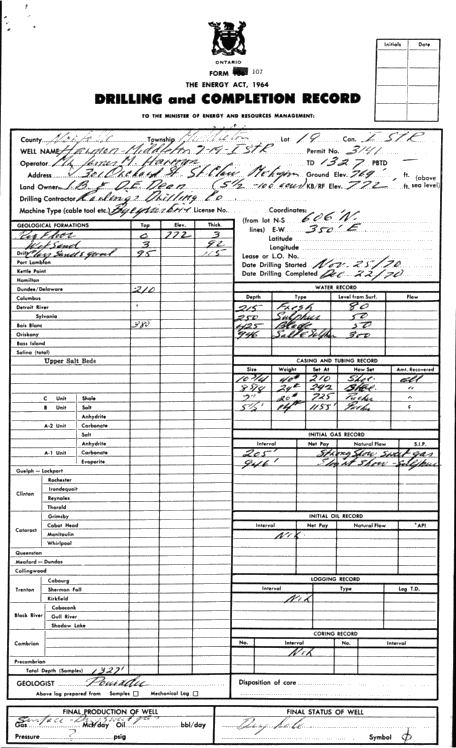 Initials Date
ONTARIO
FORM 107
THE ENERGY ACT, 1964
DRILLING and COMPLETION RECORD
TO THE MINISTER OF ENERGY AND RESOURCES MANAGEMENT:
County Norfolk Township Middleton Lot 19 Con. I STR
WELL NAME Harmon Middleton 7-19-I STR Permit No. 3141
Operator Mr James H. Harmon TD 1327 PBTD
Address Orchard St. St Clair Michigan Ground Elev. 769' ft. (above
Land Owner J.B. & D.E. Dean KB/RF Elev. 772 ft. sea level)
Drilling Contractor Drilling Co
Machine Type (cable tool etc.) License No.
Coordinates:
(from lot N-S 606 N.
lines) E-W 350' E
Latitude
Longitude
Lease or L.O. No.
Date Drilling Started Nov. 25/70
Date Drilling Completed Dec. 22/70
GEOLOGICAL FORMATIONS Top Elev. Thick.
Rig Floor 0 772 3
Wet Sand 3 92
Drift Clay Sand & gravel 95 115
Port Lambton
Kettle Point
Hamilton
Dundee/Delaware 210
Columbus
Detroit River
Sylvania
Bois Blanc 380
Oriskany
Bass Island
Salina (total)
Upper Salt Beds
C Unit Shale
B Unit Salt
Anhydrite
A-2 Unit Carbonate
Salt
Anhydrite
A-1 Unit Carbonate
Evaporite
Guelph — Lockport
Clinton
Rochester
Irondequoit
Reynales
Thorold
Grimsby
Cataract
Cabot Head
Manitoulin
Whirlpool
Queenston
Meaford — Dundas
Collingwood
Trenton
Cobourg
Sherman Fall
Kirkfield
Black River
Coboconk
Gull River
Shadow Lake
Cambrian
Precambrian
Total Depth (Samples) 1327'
GEOLOGIST
Above log prepared from Samples Mechanical Log
WATER RECORD
Depth Type Level from Surf. Flow
215 Fresh 80
250 Sulphur 50
625 Black 50
946 Salt & Sulphur 300
CASING AND TUBING RECORD
Size Weight Set At How Set Amt. Recovered
10 3/4 40# 210 Shoe all
8 5/8 24# 292 Shoe "
7" 20# 725 Packer "
5 1/2 14# 1155' Packer "
INITIAL GAS RECORD
Interval Net Pay Natural Flow S.I.P.
205' Strong Show Sweet gas
946' Slight Show - Sulphur
INITIAL OIL RECORD
Interval Net Pay Natural Flow °API
Nil
LOGGING RECORD
Interval Type Log T.D.
Nil
CORING RECORD
No. Interval No. Interval
Nil
Disposition of core
FINAL PRODUCTION OF WELL
Gas Mcf/day Oil bbl/day
Pressure ? psig
FINAL STATUS OF WELL
Dry hole
Symbol